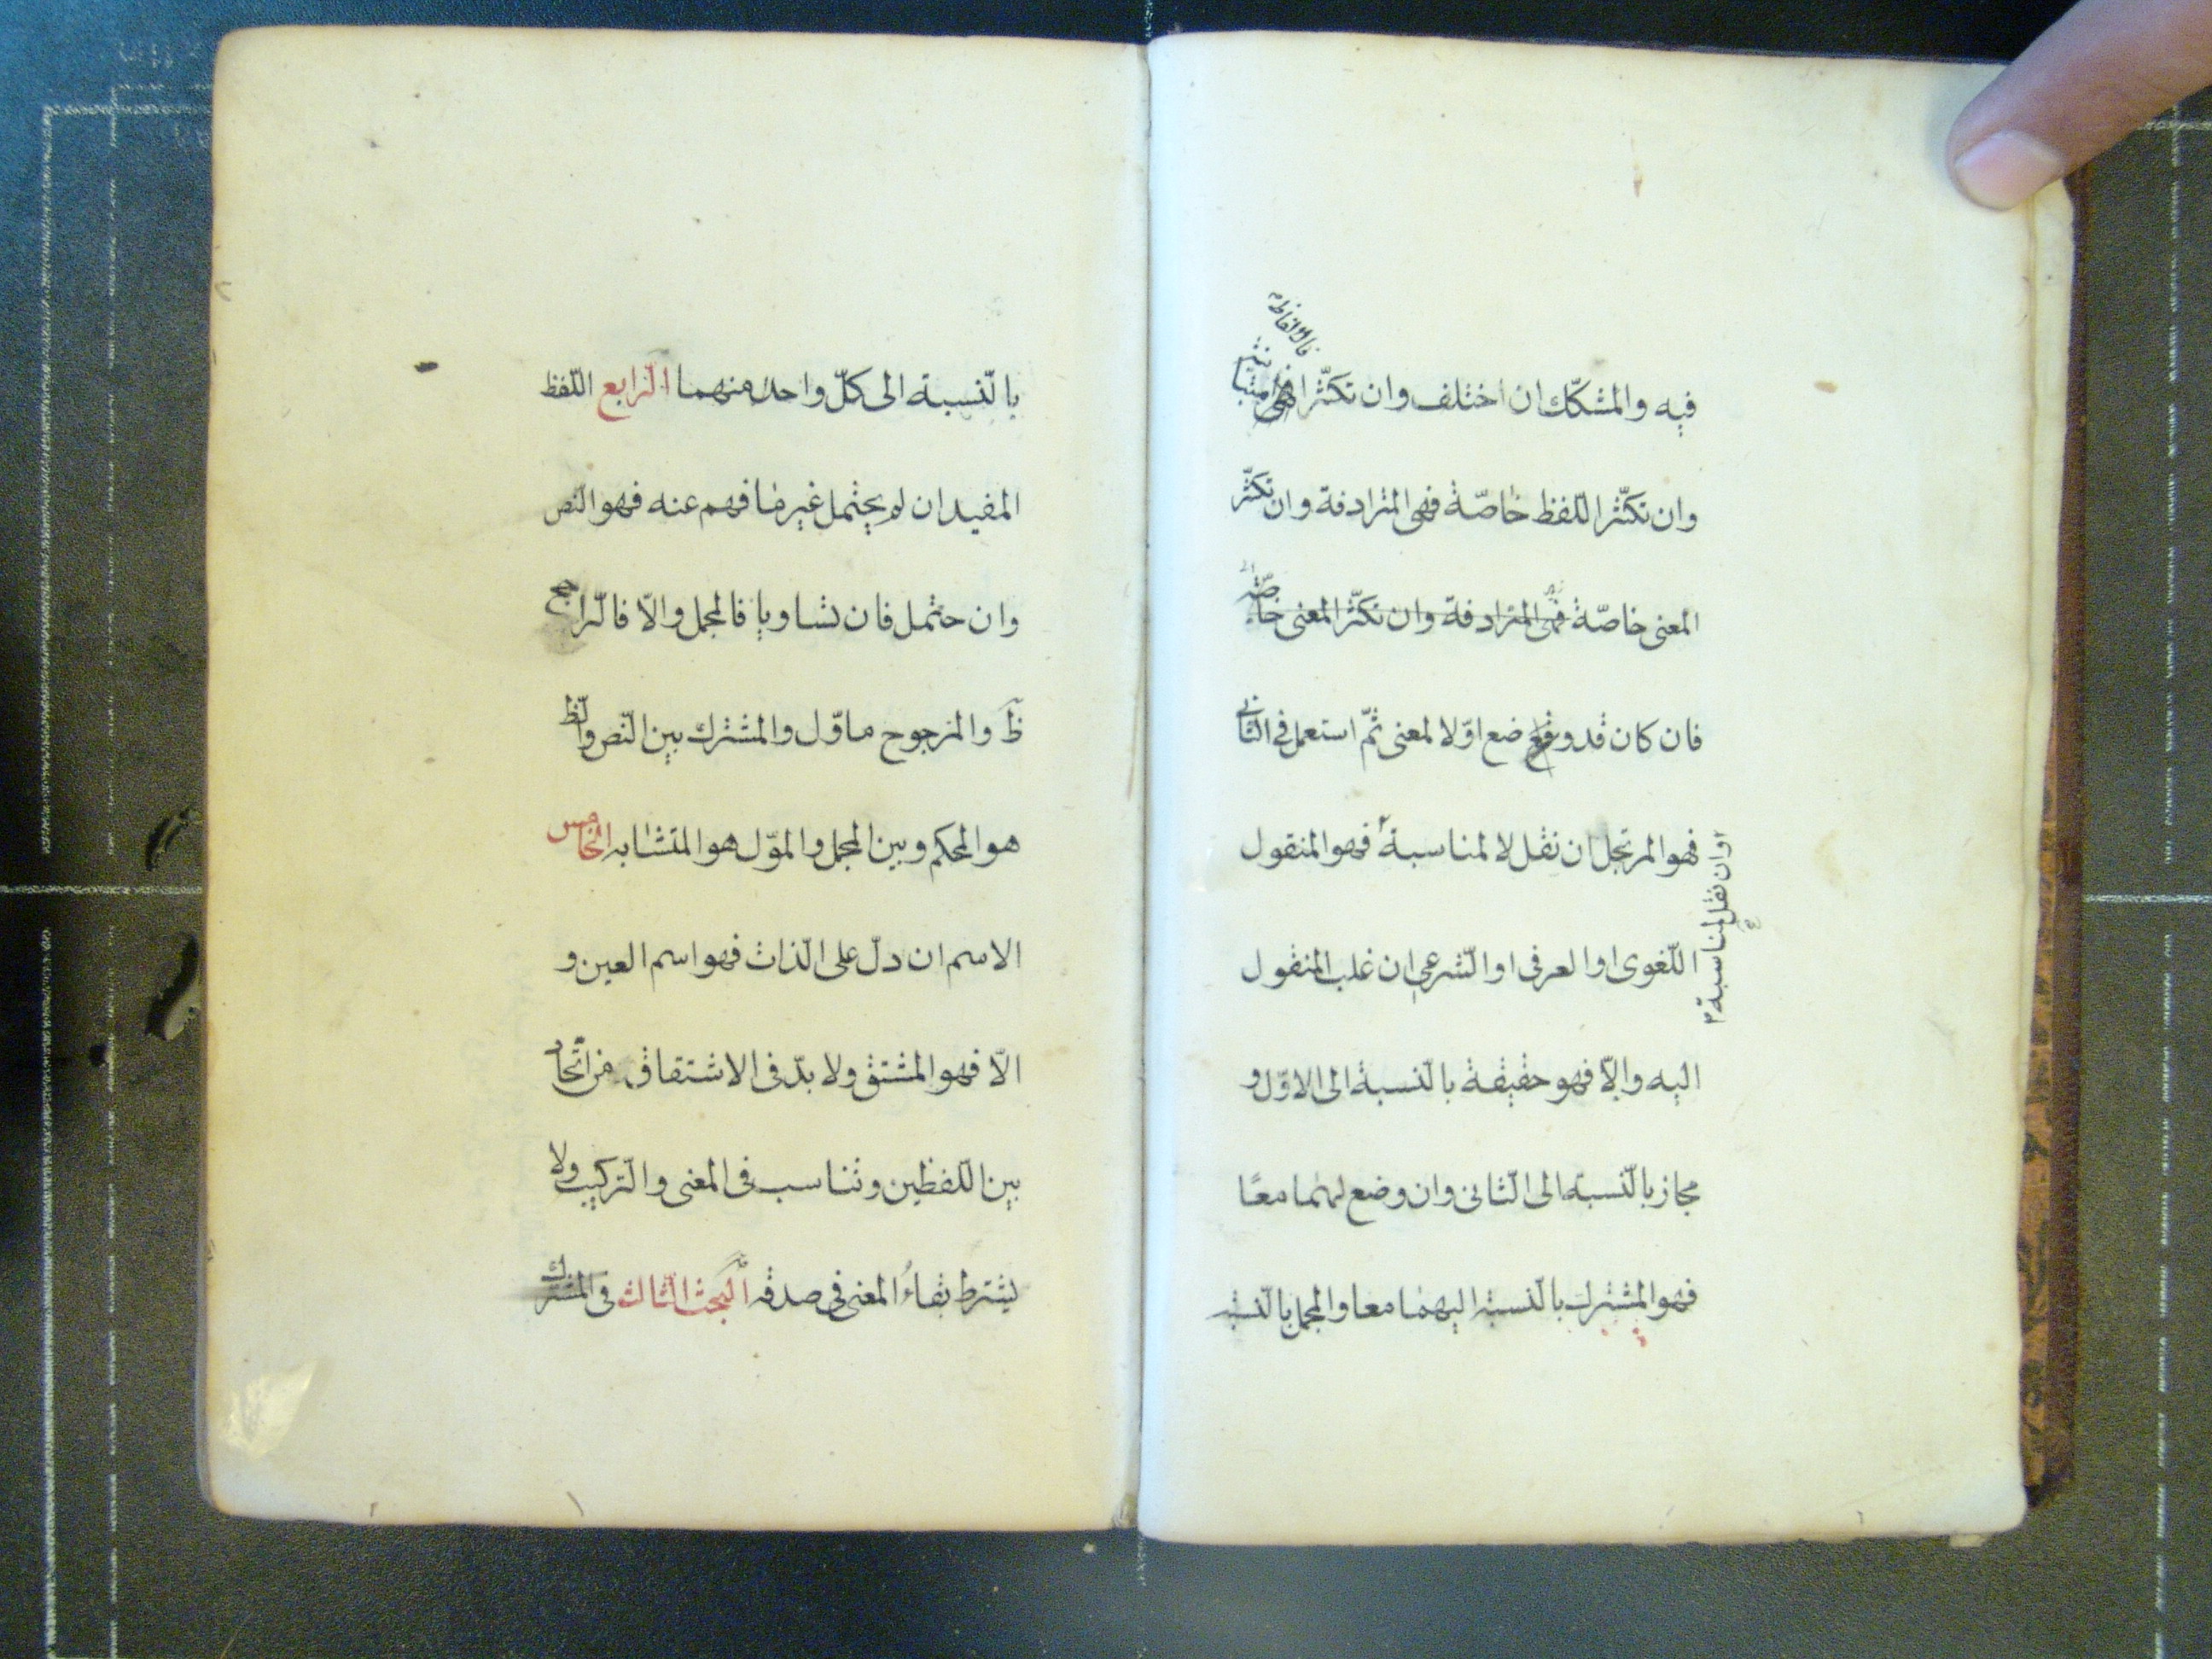 فالالفاظ
فيه والمشكّك ان اختلف وان تكثّرا فهى متباينة
وان تكثّر اللّفظ خاصّة فهى المترادفة وان تكثّر
المعنى خاصّة فهى المترادفة وان تكثّر المعنى خاصّة
فان كان قد وضع اوّلا لمعنى ثمّ استعمل فى الثانى
فهو المرتجل ان نقل لا لمناسبة فهو المنقول
وان نقل لمناسبة
اللّغوى او العرفى او الشّرعى ان غلب المنقول
اليه والّا فهو حقيقة بالنّسبة الى الاوّل و
مجاز بالنّسبة الى الثّانى وان وضع لهما معًا
فهو المشترك بالنّسبة اليهما معا والمجمل بالنّسبة
بالنّسبة الى كلّ واحد منهما الرّابع اللّفظ
المفيد ان لم يحتمل غير ما فهم عنه فهو النّص
وان حتمل فان تساويا فالمجمل والّا فالرّاجح
ظ والمرجوح ماوّل والمشترك بين النّص والظ
هو المحكم وبين المجمل والموّل هو المتشابه الخامس
الاسم ان دلّ على الذّات فهو اسم العين و
الّا فهو المشتق ولا بدّ فى الاشتقاق من اتّحاد
بين اللّفظين وتناسب فى المعنى والتّركيب ولا
يشترط بقاء المعنى فى صدقه البحث الثّالث فى المشترك